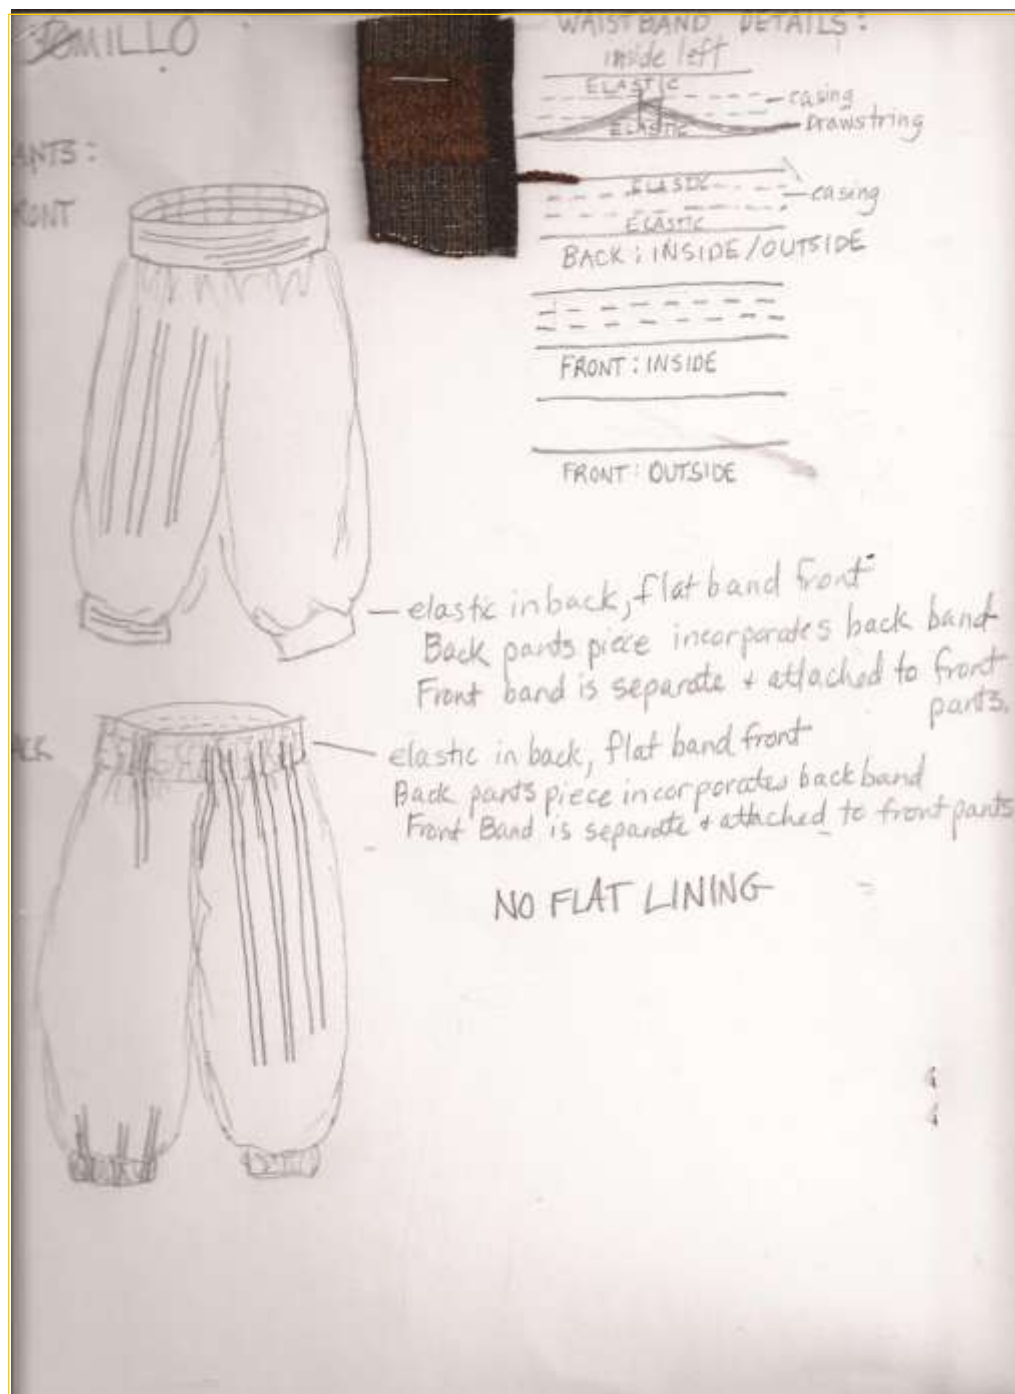 MILLO
WAISTBAND DETAILS:
inside left
ELASTIC
casing
Drawstring
ELASTIC
ANTS:
RONT
ELASTIC
casing
ELASTIC
BACK: INSIDE/OUTSIDE
FRONT: INSIDE
FRONT: OUTSIDE
elastic in back, flat band front
Back pants piece incorporates back band
Front band is separate + attached to front
pants.
ACK
elastic in back, flat band front
Back pants piece incorporates back band
Front Band is separate + attached to front pants
NO FLAT LINING